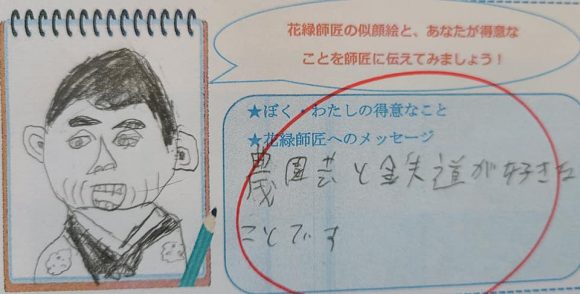 花緑師匠の似顔絵と、あなたが得意な
ことを師匠に伝えてみましょう！
★ぼく・わたしの得意なこと
★花緑師匠へのメッセージ
農園芸と鉄道が好きな
ことです